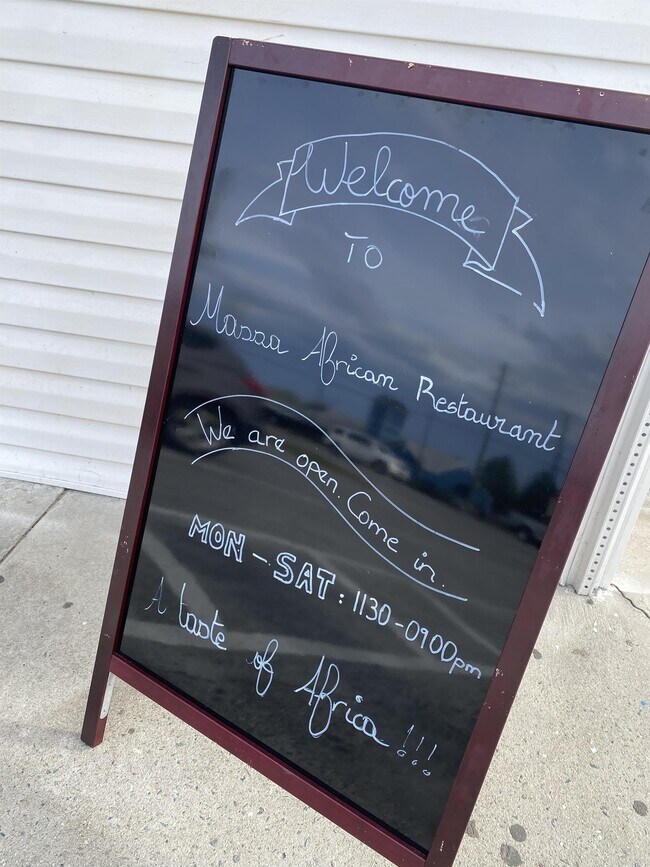 Welcome
TO
Massa African Restaurant
We are open. Come in.
MON - SAT : 1130 - 0900pm
A taste of Africa !!!